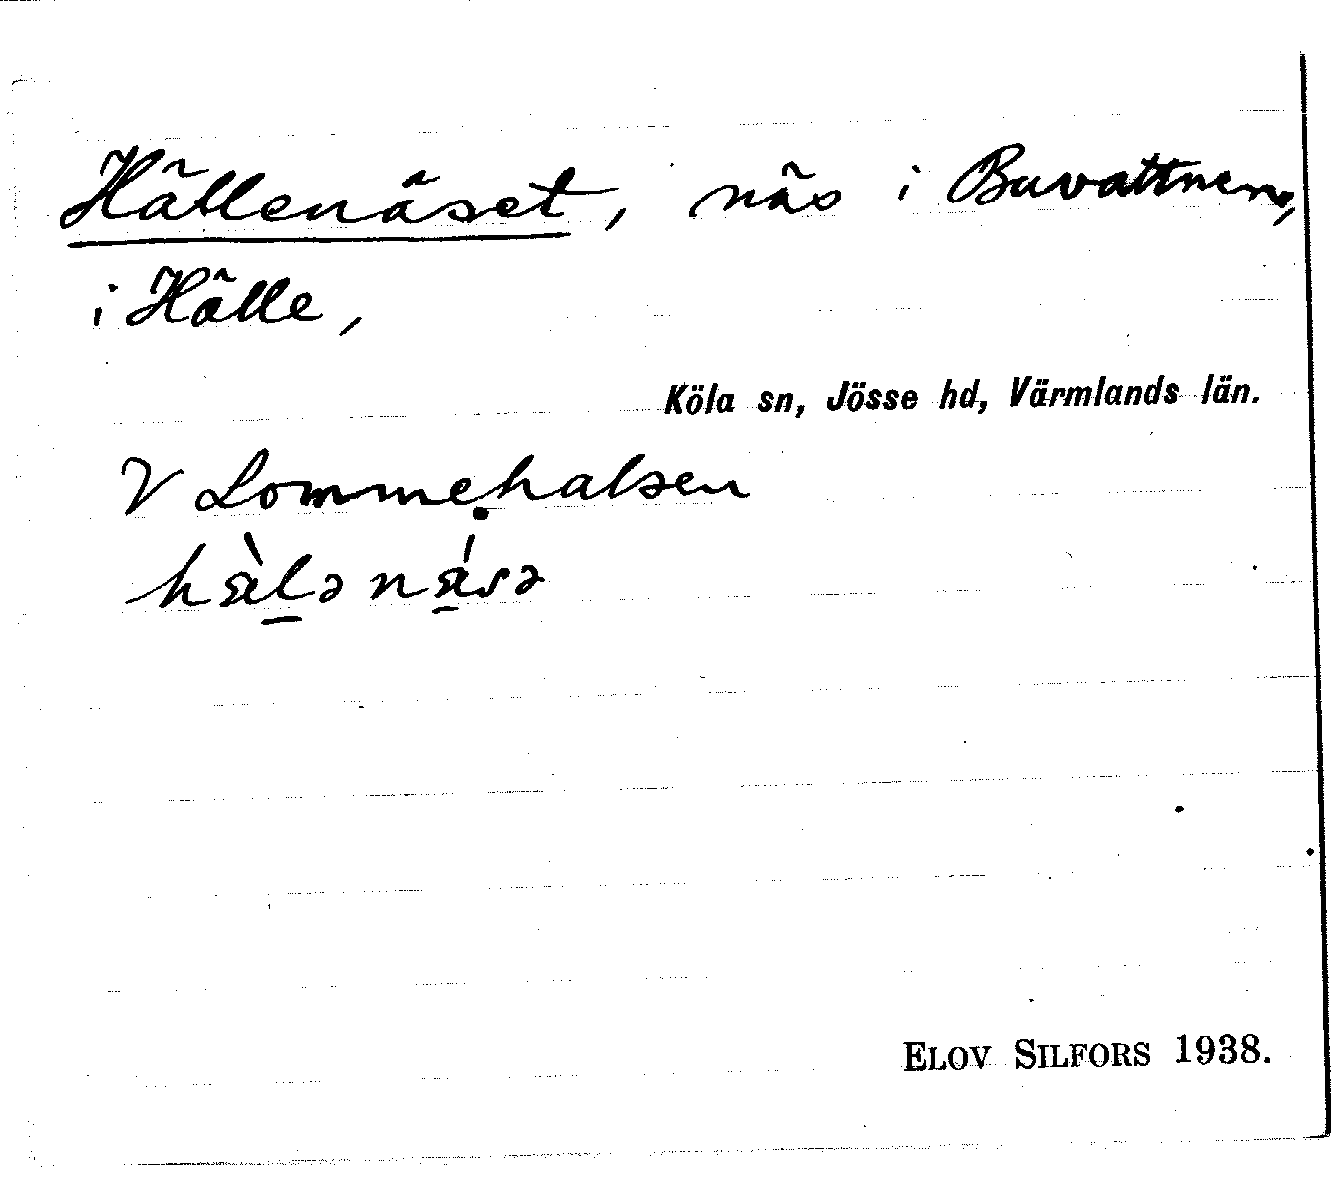 Hällenäset, näs i Buvattnen,
i Hälle,
Köla sn, Jösse hd, Värmlands län.
V Lommehalsen
hæ̀lə nǽsə
ELOV SILFORS 1938.